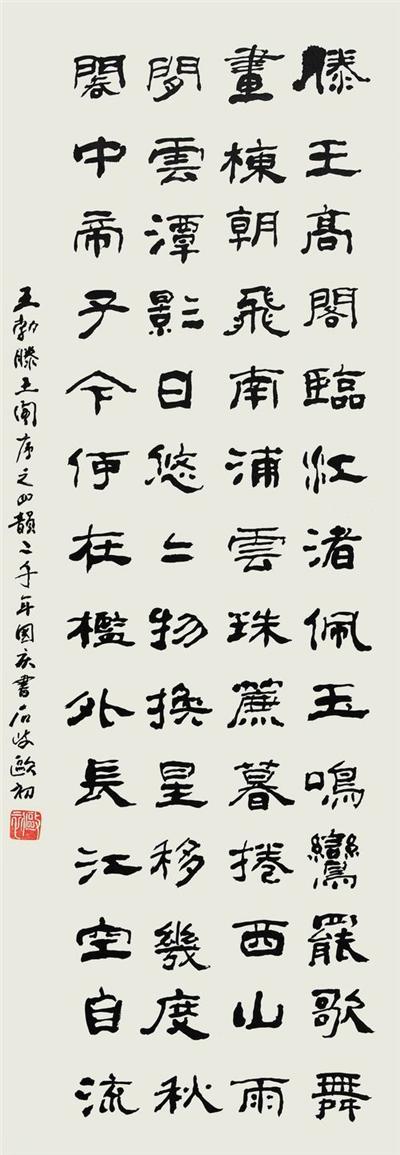 滕王髙閣臨江渚佩玉鳴鸞罷歌舞
畫棟朝飛南浦雲珠簾暮捲西山雨
閒雲潭影日悠〻物換星移幾度秋
閣中帝子今何在檻外長江空自流
王勃滕王閣序之四韻二千年國慶書石岐歐初
歐初